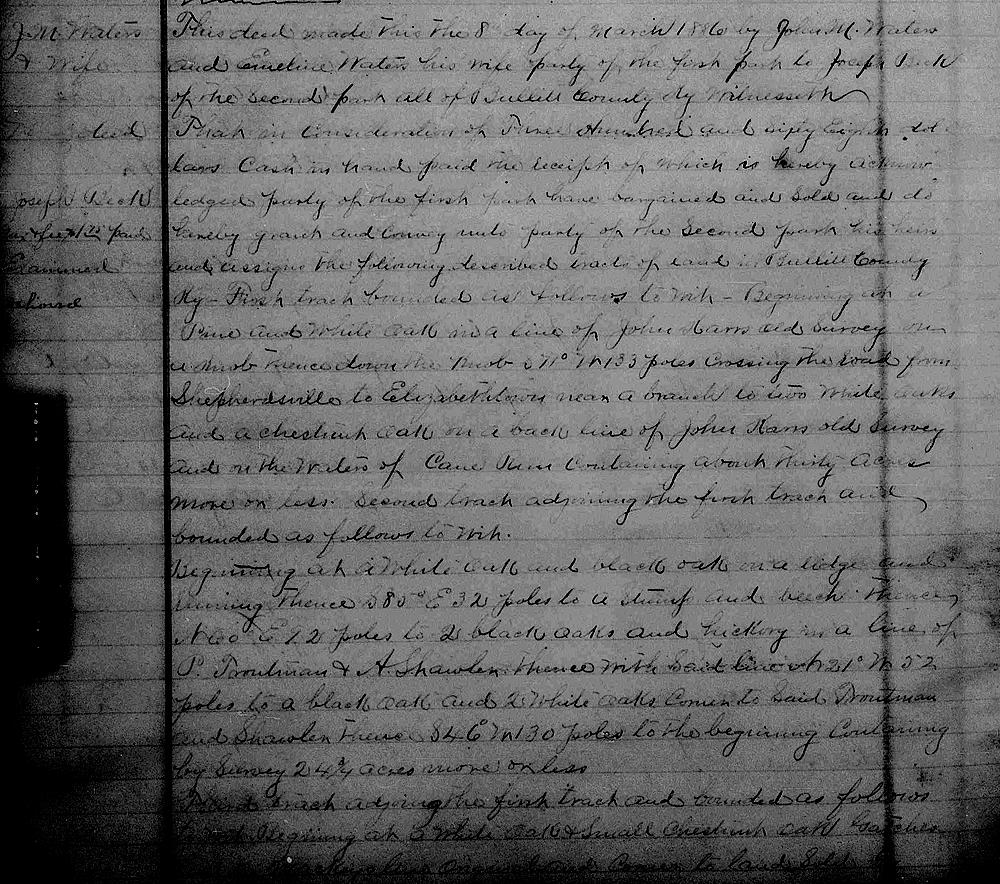 J. M. Waters
& Wife
deed
Joseph Beck
paid
Examined
This deed made this the 8 day of March 1886 by John M. Waters
and Emeline Waters his wife party of the first part to Joseph Beck
of the second part all of Bullitt County Ky Witnesseth
That in Consideration of Three Hundred and sixty Eight dol
lars Cash in hand paid the receipt of which is hereby acknow
ledged party of the first part have bargained and sold and do
hereby grant and convey unto party of the second part his heirs
and assigns the following described tracts of land in Bullitt County
Ky - First tract bounded as follows to wit - Begining at a
Pine and White oak in a line of John Harrs old Survey on
a Knob thence down the Knob S 71° W 133 poles crossing the road from
Shepherdsville to Elizabethtown near a branch to two white oaks
and a chestnut oak on a back line of John Harrs old Survey
and on the Waters of Cane Run Containing about thirty acres
more or less. Second tract adjoining the first tract and
bounded as follows to wit.
Begining at a White oak and black oak on a ledge and
runing thence S 85° E 32 poles to a stump and beech thence
N 60 E 92 poles to 2 black oaks and hickory in a line of
P. Troutman & A. Shawler thence with said line N 21° W 52
poles to a black oak and 2 White oaks Corner to Said Troutman
and Shawler thence S 46 W 130 poles to the begining Containing
by Survey 24¾ acres more or less
Third tract adjoing the first tract and bounded as follows
to wit Begining at a White oak & Small Chestnut oak
and Corner to land Sold